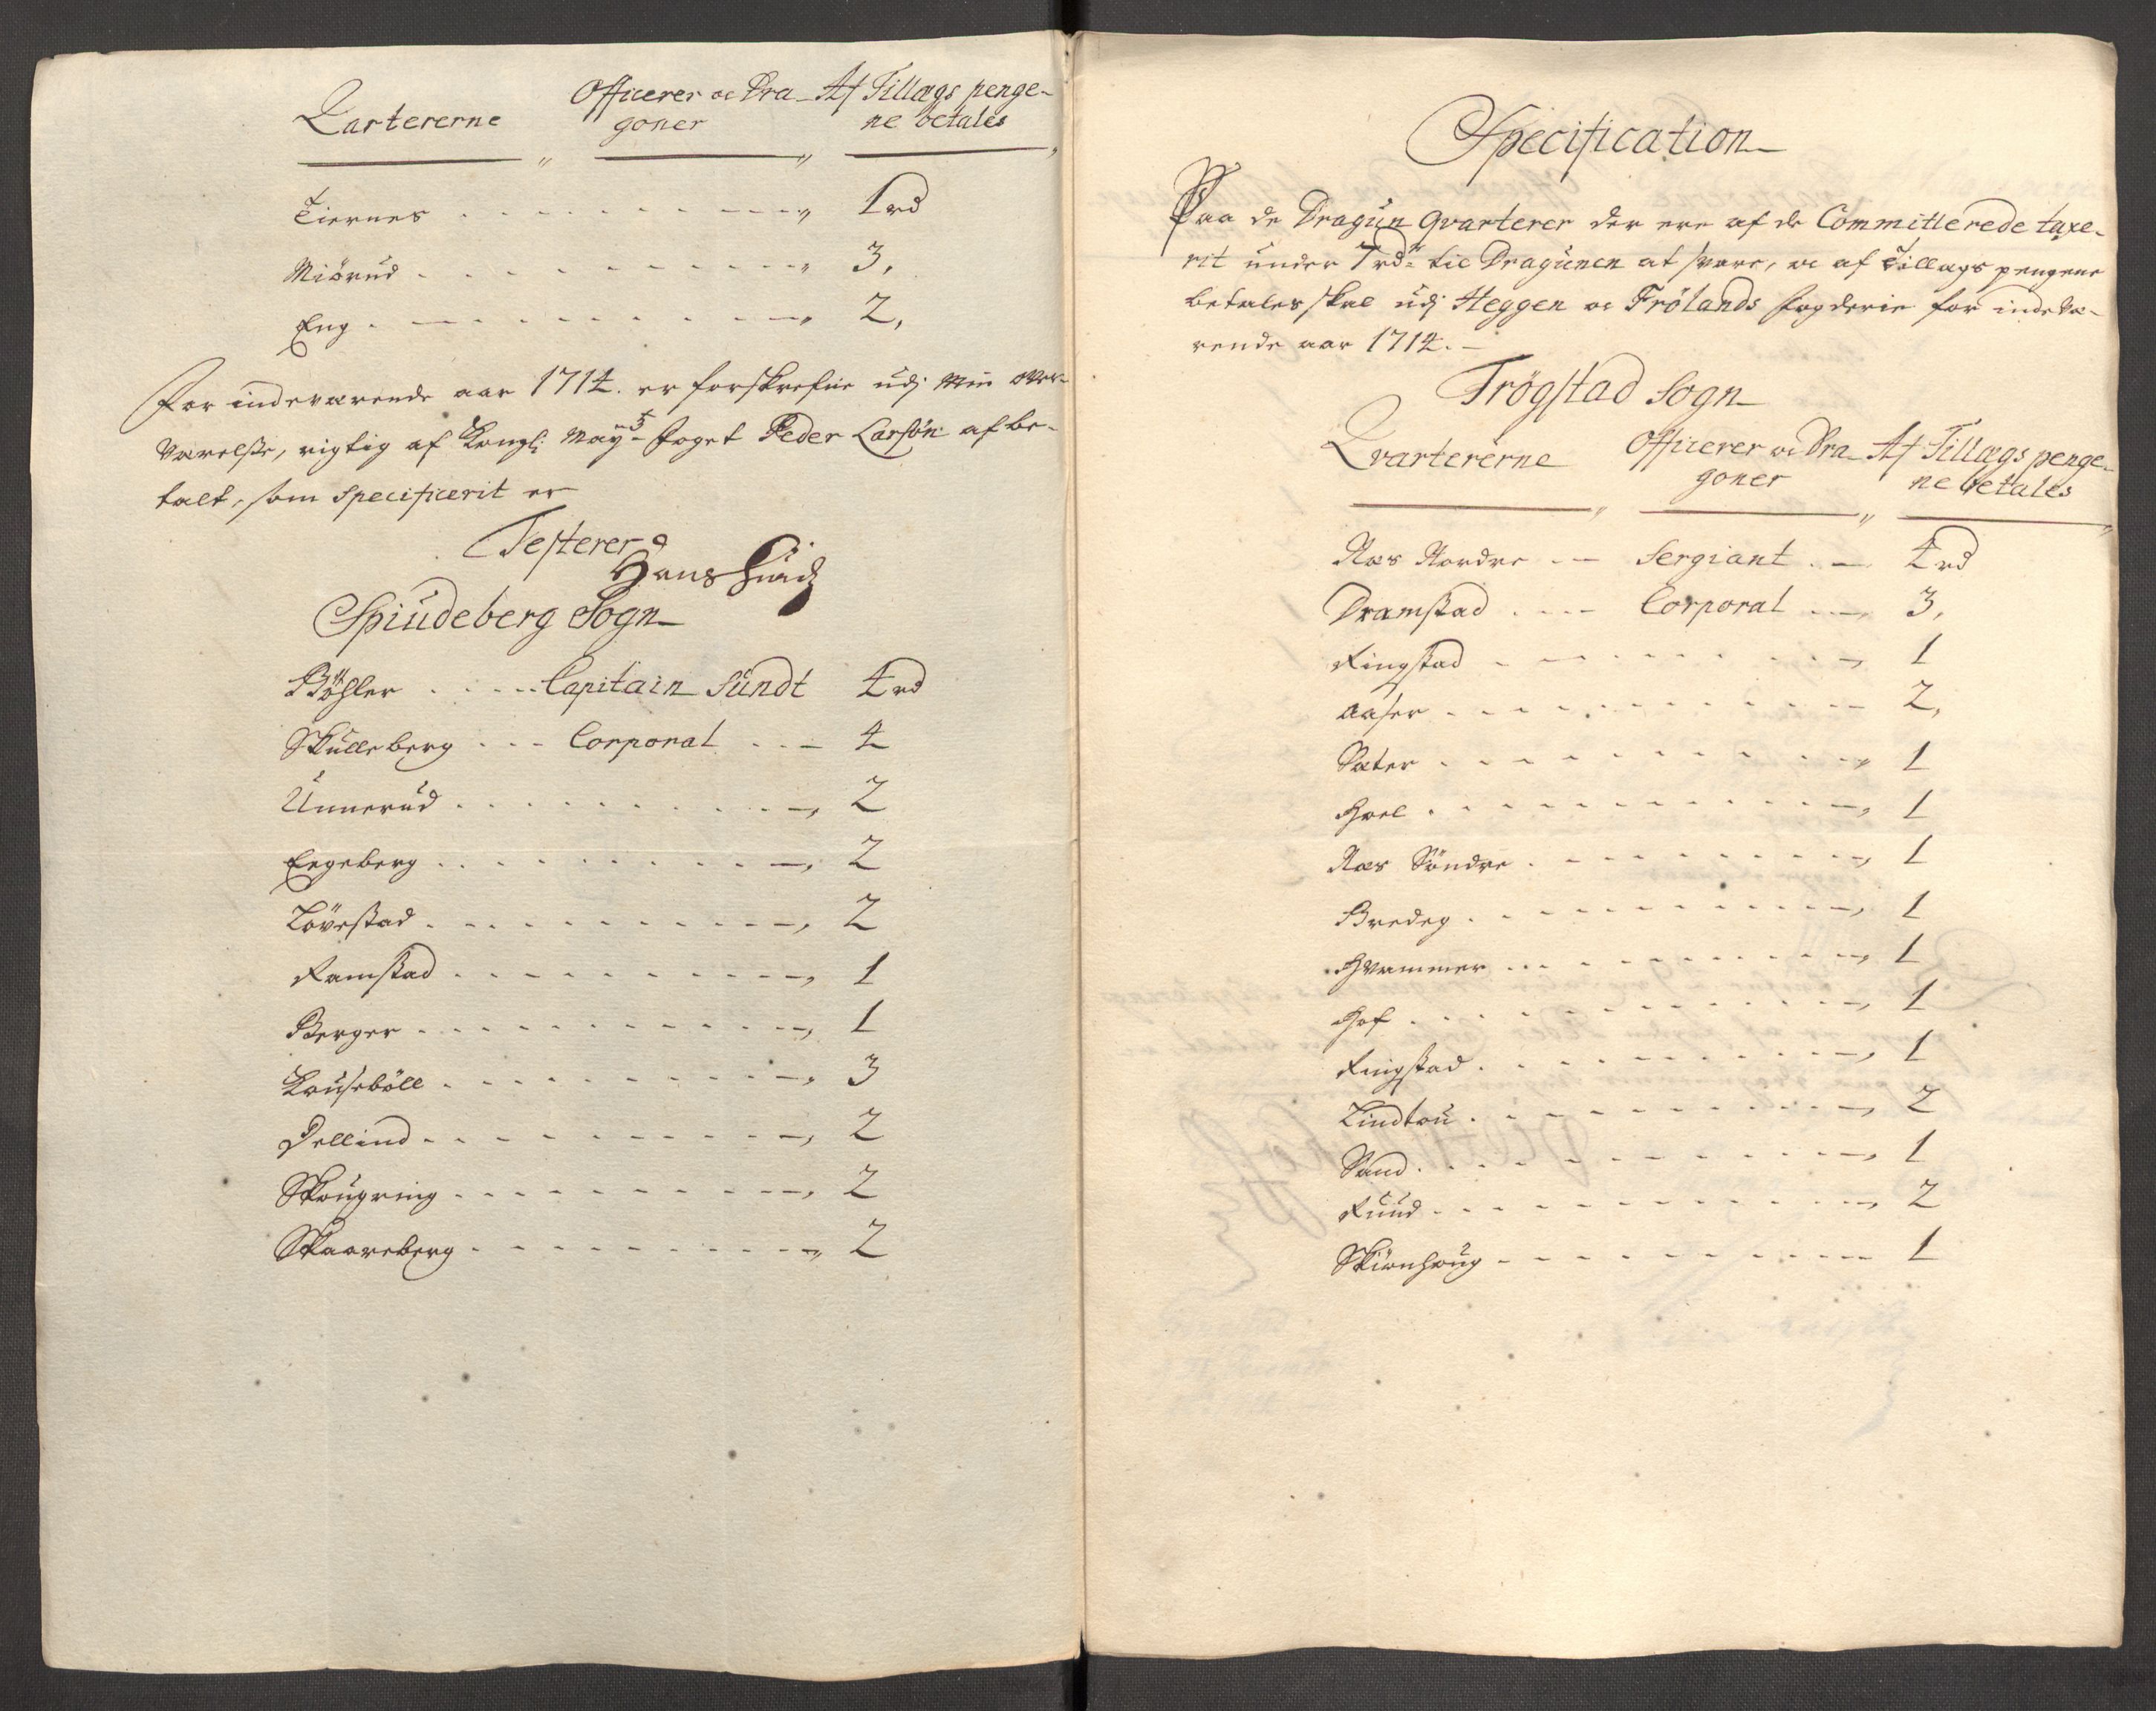 Qvartererne Officerer oc Dra- Af Tillægs penge-
goner ne betales
Tiernes 1 rd
Miörud 3,
Eng 2,
For indeværende aar 1714. er forskrefne udj Min ofver-
værelße, rigtig af Kongl: May:ts Foget Peder Larsön afbe-
talt, som Specificerit er
Testerer
Hans
Spiudeberg Sogn
Böhler Capitain Sundt 4 rd
Skulleberg Corporal 4
Unnerud 2
Engeberg 2
Lövestad 2
Ramstad 1
Berger 1
Louseböll 3
Dellind 2
Skougeng 2
Skaareberg 2
Specification
Paa de Dragun Qvarterer der ere af de Committerede taxe-
rit under 7 rd:r til Dragunen at svare, oc af Tillægs pengene
betales skal udj Heggen oc Frölands fogderie for indevæ-
rende aar 1714.
Trögstad Sogn
Qvartererne Officerer oc Dra- Af Tillægs penge-
goner ne betales
Næs Nordre Sergiant 4 rd
Dramstad Corporal 3,
Ringstad 1
Aaser 2,
Sæter 1
Hoel 1
Næs Söndre 1
Bredeg 1
Hvammer 1
Hof 1
Ringstad 1
Lindtou 2
Sand 1
Ruud 2
Skiönhoug 1